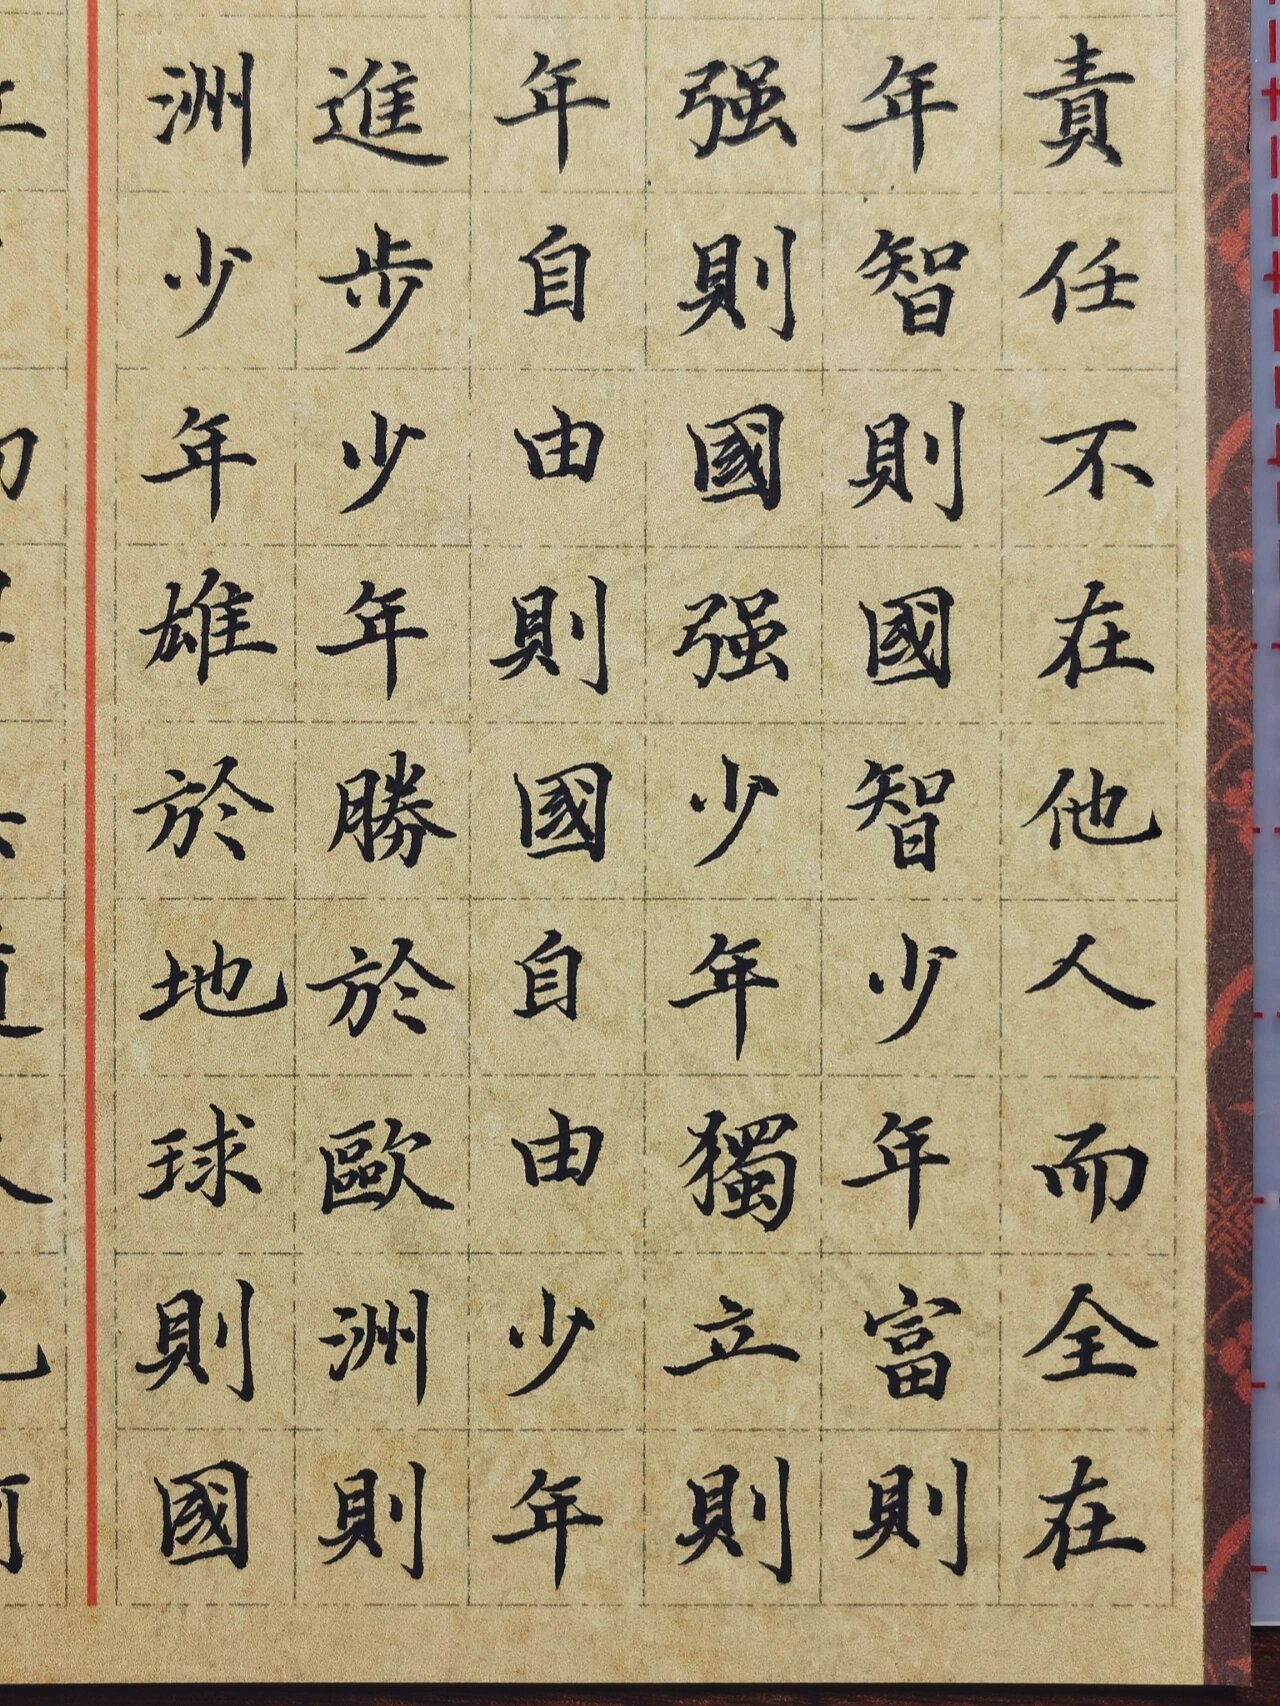 責任不在他人而全在
年智則國智少年富則
强則國强少年獨立則
年自由則國自由少年
進步少年勝於歐洲則
洲少年雄於地球則國